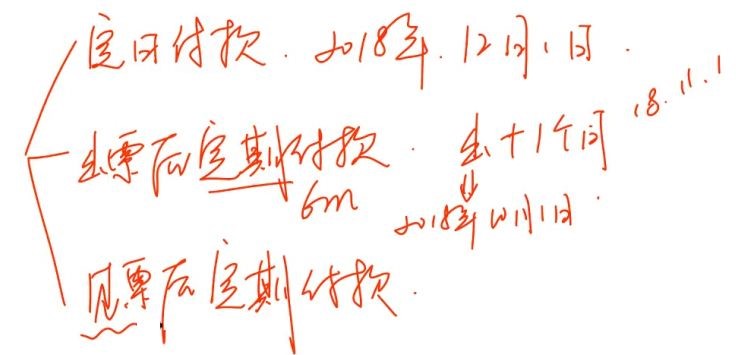 定日付款. 2018年.12月1日.
出票后定期付款. 出+1个月 18.11.1
6m
2018年10月1日.
见票后定期付款.